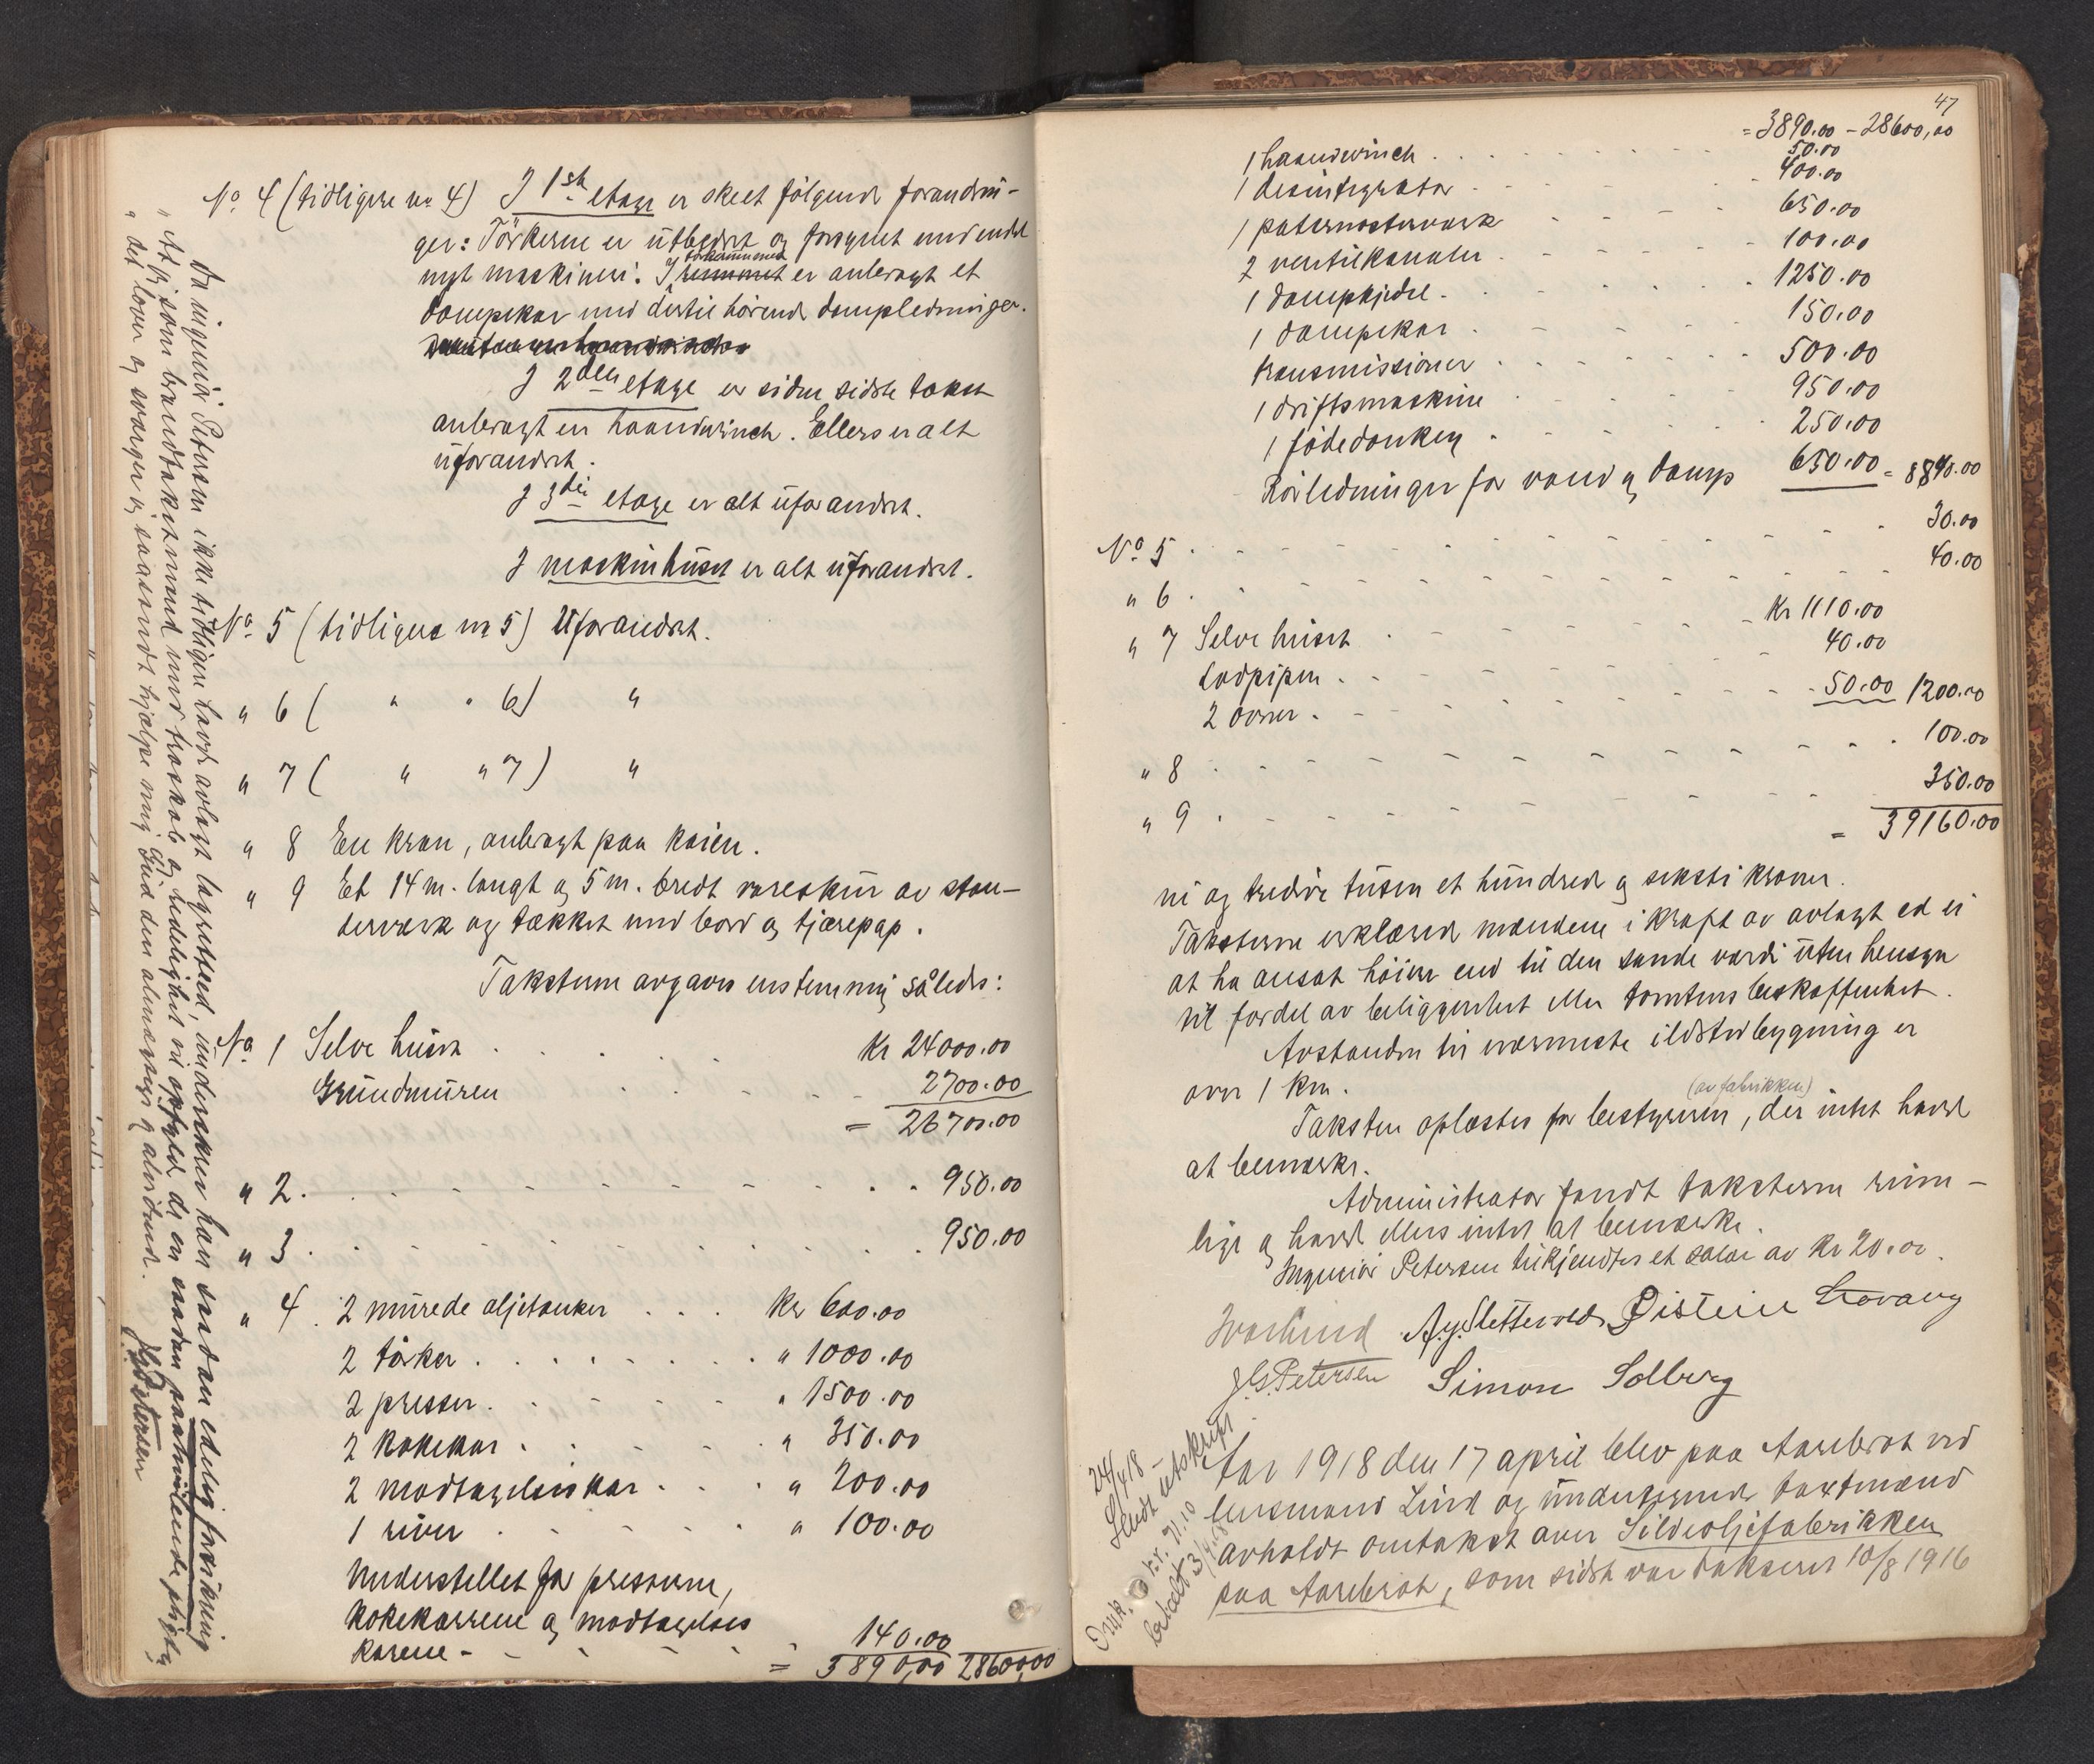 No 4 (tidligere no 4) I 1ste etage er skeet følgende forandrin-
ger: Törkerne er utbedret og forsynet med endel
nyt maskineri. I törkerummet rummet er anbragt et
dampkar med dertil hörende dampledninger.
I 2den etage er siden sidste takst
anbragt en haandwinch. Ellers er alt
uforandret.
I 3die etage er alt uforandret.
I maskinhuset er alt uforandret.
No 5 (tidligere no 5) Uforandret.
" 6 ( " " 6) "
" 7 ( " " 7) "
" 8 En kran, anbragt paa kaien.
" 9 Et 14 m. langt og 5 m. bredt vareskur av stan-
derverk og tækket med bord og tjærepap.
Taksten avgaves enstemmig således:
No 1 Selve huset . . . . kr 24000.00
Grundmuren . . . . 2700.00
= 26700.00
" 2 . . . . 950.00
" 3 . . . . 950.00
" 4. 2 murede oljetanker . . . kr 600.00
2 törker . . . . " 1000.00
2 presser . . . . " 1500.00
2 kokekar . . . . " 350.00
2 modtagelseskar . . . " 200.00
1 river . . . . " 100.00
Understellet for presserne,
kokekarrene og modtagelses
karene - - - - 140.00
= 3890,00 28600,00
Da ingeniör Petersen ikke tidligere havde avlagt lagretsed, underskrev han saadan edelig forsikring
" At jeg som brandtakstmand med troskab og redelighet vil opfylde de en saadan paahvilende pligter
" det lover og sværger jeg saasandt hjælpe mig Gud den almægtige og alvidende.
J.G. Petersen
47
= 3890.00 - 28600,00
1 haandwinch . . . . 50.00
1 desintegrator . . . . 400.00
1 paternosterverk - - - - 650.00
2 ventilkanaler . - - - 100.00
1 dampkjedel . . . . 1250.00
1 dampkar . - - - 150.00
transmissioner . . . . 500.00
1 driftsmaskine . . . . 950.00
1 födedonkey . - - - 250.00
Rörledninger for vand og damp 650.00 = 8840.00
No 5 . - - - - 30.00
" 6 . - - - - 40.00
" 7 Selve huset . - - - kr 1110.00
Lodpipen . - - - 40.00
2 ovner . - - - 50.00 1200.00
" 8 . - - - - 100.00
" 9 . - - - - 350.00
= 39160.00
ni og tredve tusen et hundrede og seksti kroner.
Taksterne erklærede mændene i kraft av avlagt ed ei
at ha ansat höiere end til den sande værdi uten hensyn
til fordel av beliggenhet eller tomtens beskaffenhet.
Avstanden til nærmeste ildstedbygning er
over 1 km.
(av fabrikken)
Taksten oplæstes for bestyreren, der intet havde
at bemerke.
Administrator fandt taksterne rime-
lige og havde ellers intet at bemerke.
Ingeniör Petersen tilkjendtes et salær av kr 20.00.
A.g. Sletterold Øistein
J.G. Petersen Simon Solberg
Aar 1918 den 17 april blev paa Aarebrot ved
lensmand Lind og undertegnede takstmænd
avholdt omtakst over Sildeoljefabrikken
paa Aarebrot, som sidst var takseret 10/8 1916
24/4 18
Sendt utskrift
Omk. kr. 71.10
betalt 3/